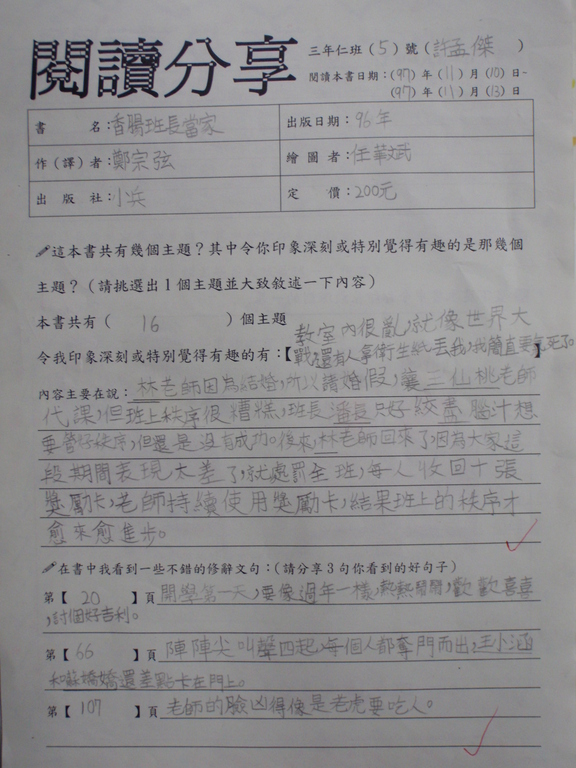 閱讀分享
三年仁班（5）號（許孟傑）
閱讀本書日期：（97）年（11）月（10）日-
（97）年（11）月（13）日
書名：香腸班長當家
出版日期：96年
作（譯）者：鄭宗弦
繪圖者：任華斌
出版社：小兵
定價：200元
這本書共有幾個主題？其中令你印象深刻或特別覺得有趣的是那幾個
主題？（請挑選出1個主題並大致敘述一下內容）
本書共有（16）個主題
令我印象深刻或特別覺得有趣的有：【教室內很亂，就像世界大
戰，還有人拿衛生紙丟我，我簡直要氣死了。
內容主要在說：林老師因為結婚，所以請婚假，讓三仙桃老師
代課，但班上秩序很糟糕，班長潘只好絞盡腦汁想
要管好秩序，但還是沒有成功。後來，林老師回來了，因為大家這
段期間表現太差了，就處罰全班，每人收回十張
獎勵卡，老師持續使用獎勵卡，結果班上的秩序才
愈來愈進步。
在書中我看到一些不錯的修辭文句：（請分享3句你看到的好句子）
第【20】頁開學第一天，要像過年一樣，熱熱鬧鬧，歡歡喜喜
，討個好吉利。
第【66】頁陣陣尖叫聲四起，每個人都奪門而出，王小涵
和蘇嬌嬌還差點卡在門上。
第【107】頁老師的臉凶得像是老虎要吃人。